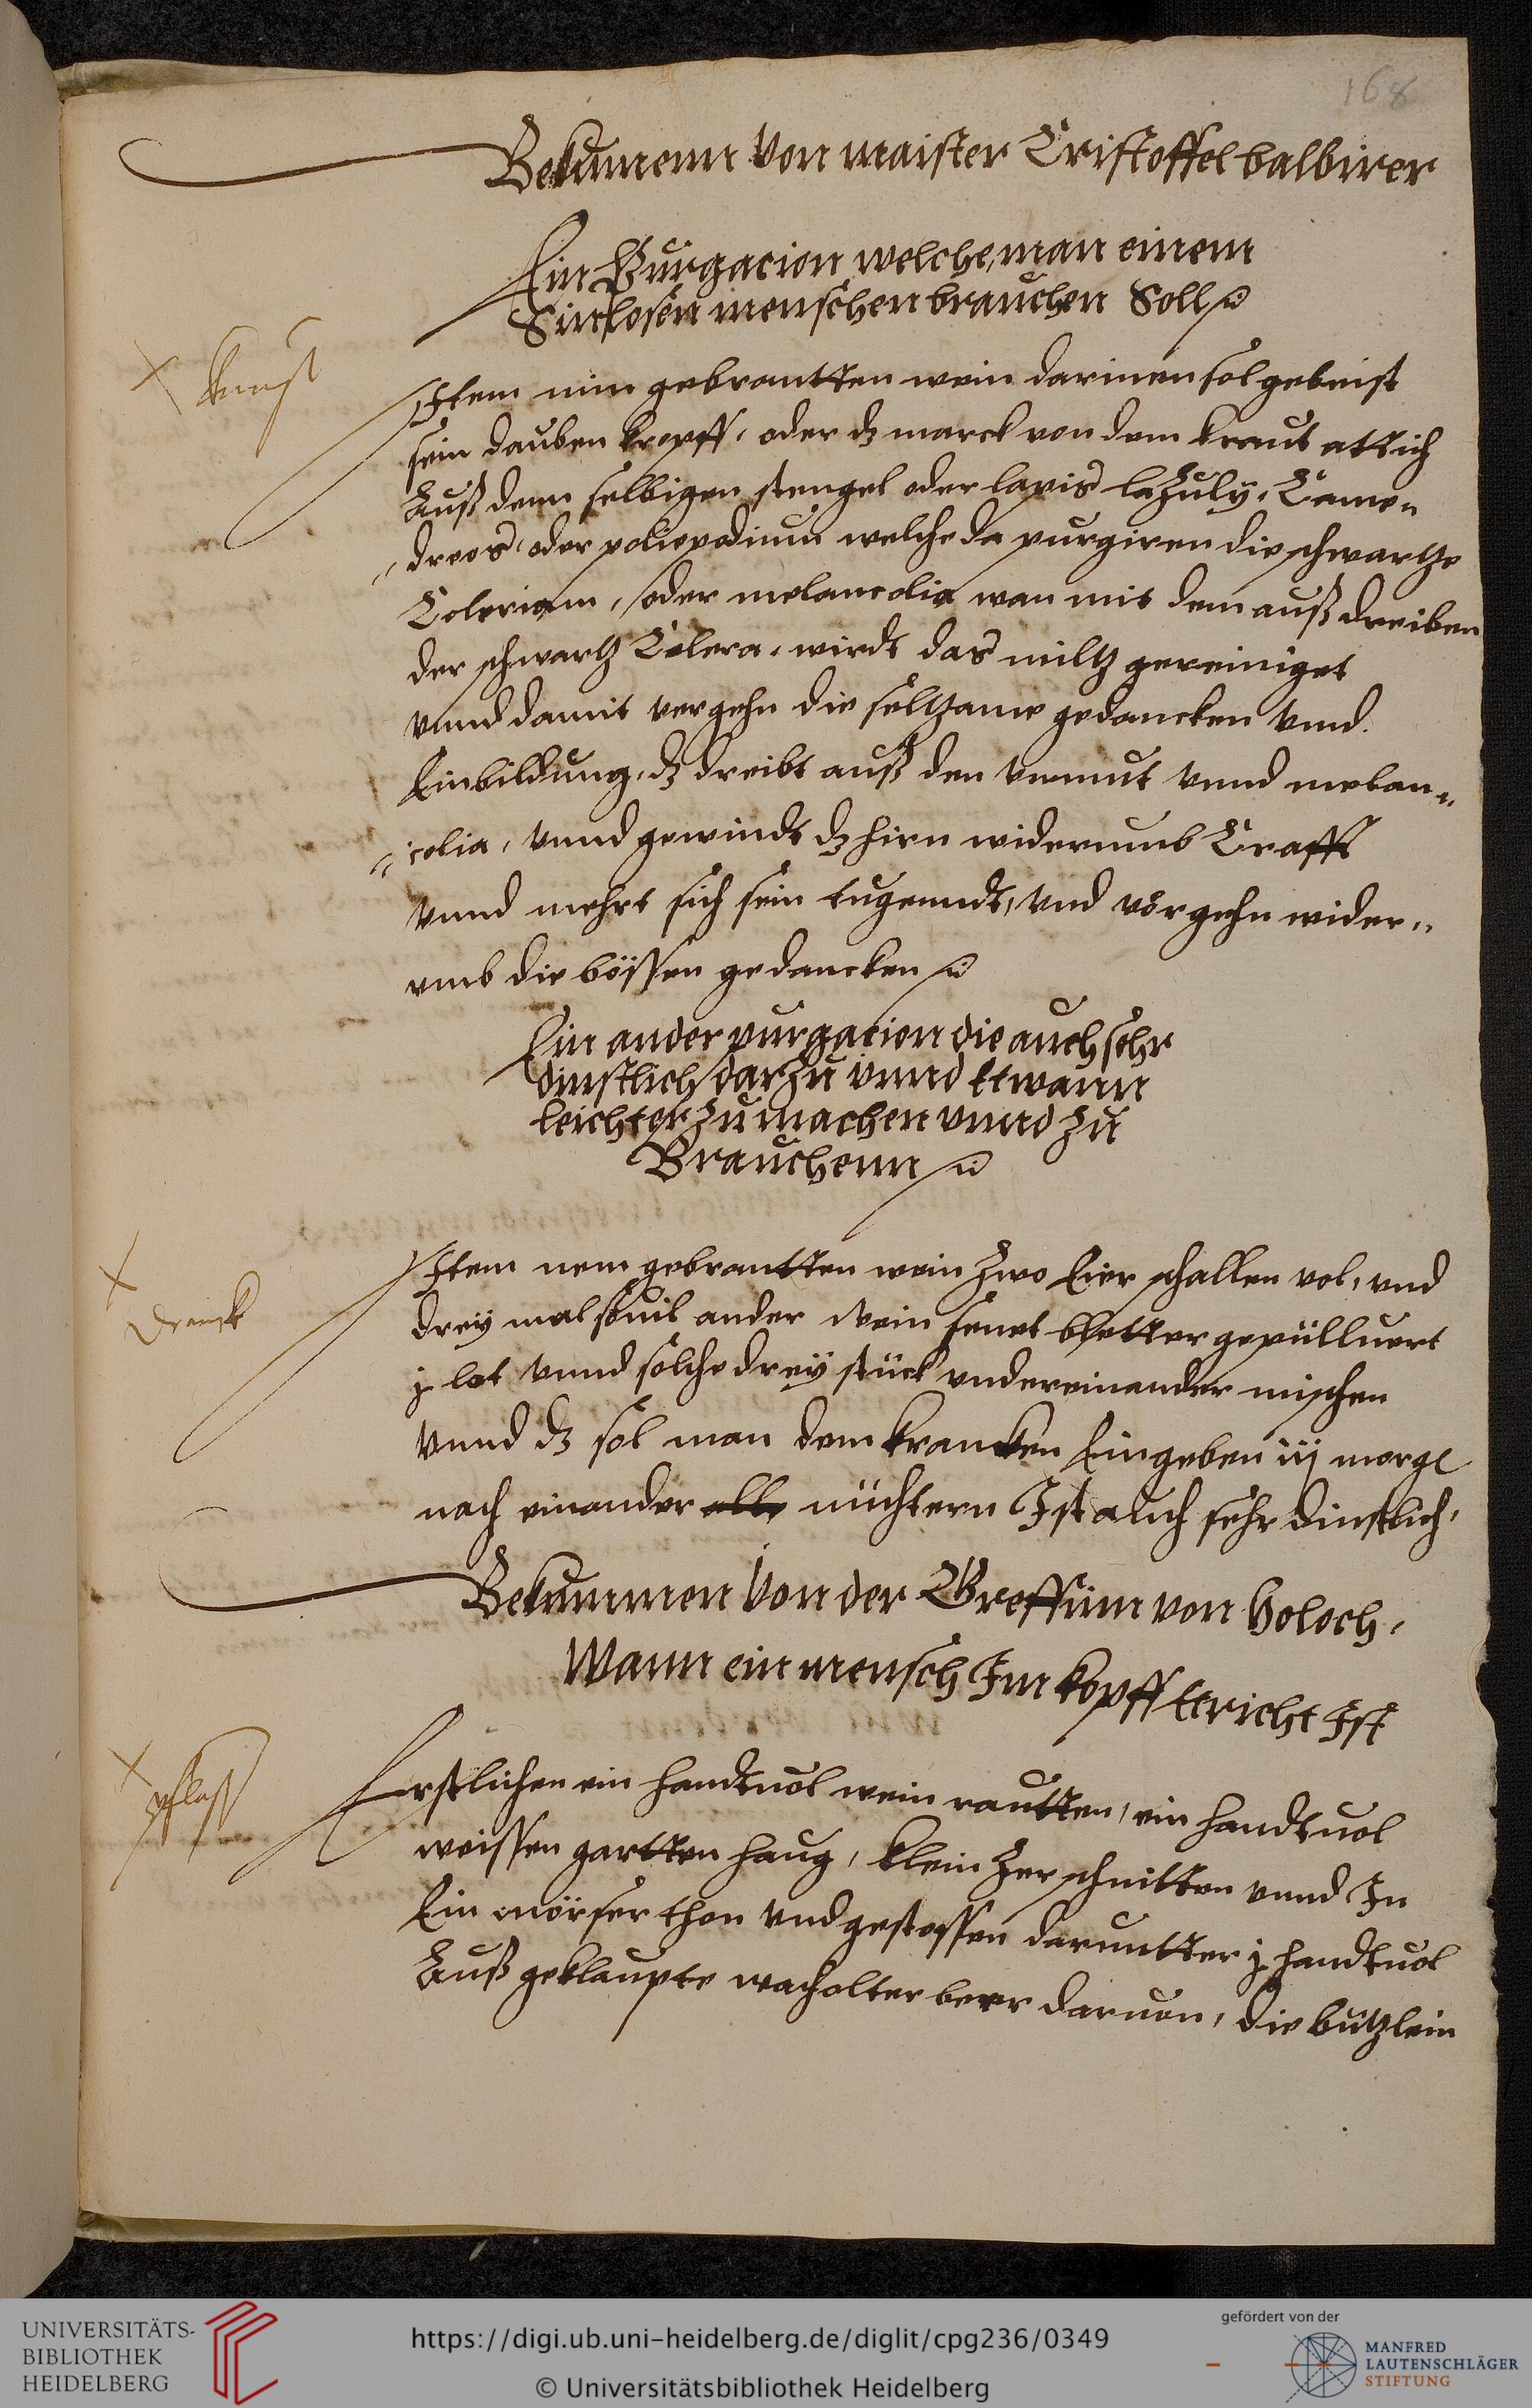 168
Bekumenn Von maister Cristoffel balbirer
Ein Purgacion welche man einem
Sinlosen menschen brauchen Soll
kunst
Item nim gebrantten wein darinen sol gebeist
sein dauben kropff, oder dz marck von dem kraut attich
Auß dem selbigen stengel oder lapis lazuly, Came„
„dreos, oder poliopodium welche da purgiren die schwartze
Coleriam, oder melancolia wan mit dem auß dreiben
der schwartz Colera, wirdt das miltz gereiniget
vnnd damit vergehn die seltzame gedancken vnnd
Einbildung, dz dreibt auß den vnmut vnnd melan„
„colia, vnnd gewindt dz hirn widerumb Crafft
vnnd mehrt sich sein tugenndt, vnd vergehn wider„
vmb die bössen gedancken
Ein ander purgacion die auch sehr
dinstlich darzu vnnd etwann
leichter zu machen vnnd zu
Brauchenn
dranck
Item nem gebrantten wein zwo Eier schallen vol, vnd
drey mal souil ander Wein senet bletter gepülluert
j lot vnnd solche drey stück vndereinander mischen
vnnd dz sol man dem krancken Eingeben iij morge
nach einander alle nüchtern Ist auch sehr dinstlich,
Bekummen Von der Greffiim von Holoch,
Wann ein mensch Im kopff Erricht Ist
pflast
Erstlichen ein handtuol wein rautten, ein handtuol
weissen gartten haug, klein zerschnitten vnnd In
Ein mörser thon vnd gestossen daruntter j handtuol
Auß geklaupte wacholter beer daruon, die bützlein
UNIVERSITÄTS-
BIBLIOTHEK
HEIDELBERG
https://digi.ub.uni-heidelberg.de/diglit/cpg236/0349
© Universitätsbibliothek Heidelberg
gefördert von der
MANFRED
LAUTENSCHLÄGER
STIFTUNG